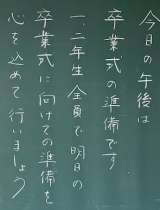 今日の午後は
卒業式の準備です
一、二年生全員で明日の
卒業式に向けての準備を
心を込めて行いましょう